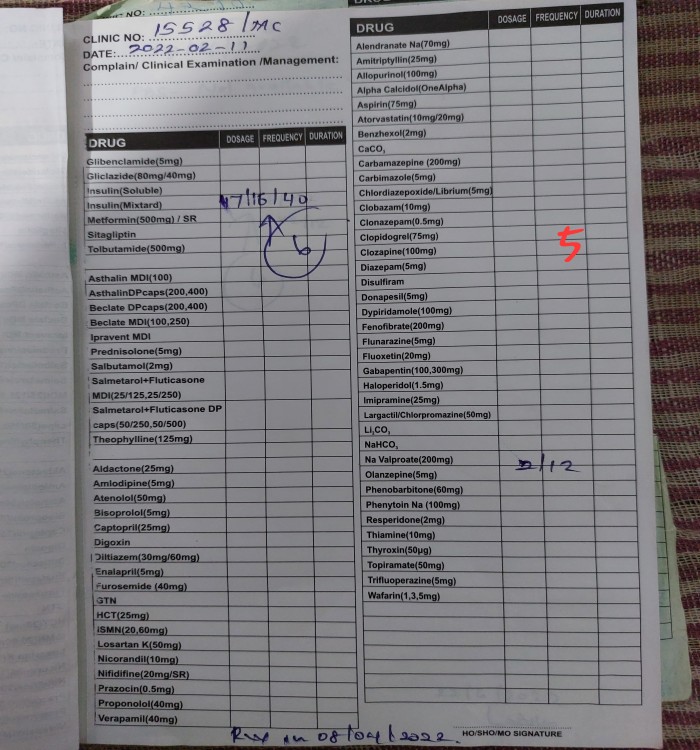 NO:
CLINIC NO: 15528/MC
DATE: 2022-02-11
Complain/ Clinical Examination /Management:
DRUG DOSAGE FREQUENCY DURATION
Glibenclamide(5mg)
Gliclazide(80mg/40mg)
Insulin(Soluble)
Insulin(Mixtard)
Metformin(500mg) / SR
Sitagliptin
Tolbutamide(500mg)
Asthalin MDI(100)
AsthalinDPcaps(200,400)
Beclate DPcaps(200,400)
Beclate MDI(100,250)
Ipravent MDI
Prednisolone(5mg)
Salbutamol(2mg)
Salmetarol+Fluticasone
MDI(25/125,25/250)
Salmetarol+Fluticasone DP
caps(50/250,50/500)
Theophylline(125mg)
Aldactone(25mg)
Amlodipine(5mg)
Atenolol(50mg)
Bisoprolol(5mg)
Captopril(25mg)
Digoxin
Diltiazem(30mg/60mg)
Enalapril(5mg)
Furosemide (40mg)
GTN
HCT(25mg)
ISMN(20,60mg)
Losartan K(50mg)
Nicorandil(10mg)
Nifidifine(20mg/SR)
Prazocin(0.5mg)
Proponolol(40mg)
Verapamil(40mg)
DRUG DOSAGE FREQUENCY DURATION
Alendranate Na(70mg)
Amitriptyllin(25mg)
Allopurinol(100mg)
Alpha Calcidol(OneAlpha)
Aspirin(75mg)
Atorvastatin(10mg/20mg)
Benzhexol(2mg)
CaCO₃
Carbamazepine (200mg)
Carbimazole(5mg)
Chlordiazepoxide/Librium(5mg)
Clobazam(10mg)
Clonazepam(0.5mg)
Clopidogrel(75mg) 5
Clozapine(100mg)
Diazepam(5mg)
Disulfiram
Donapesil(5mg)
Dypiridamole(100mg)
Fenofibrate(200mg)
Flunarazine(5mg)
Fluoxetin(20mg)
Gabapentin(100,300mg)
Haloperidol(1.5mg)
Imipramine(25mg)
Largactil/Chlorpromazine(50mg)
Li₂CO₃
NaHCO₃
Na Valproate(200mg) /12
Olanzepine(5mg)
Phenobarbitone(60mg)
Phenytoin Na (100mg)
Resperidone(2mg)
Thiamine(10mg)
Thyroxin(50µg)
Topiramate(50mg)
Trifluoperazine(5mg)
Wafarin(1,3,5mg)
on 08/04/2022
HO/SHO/MO SIGNATURE